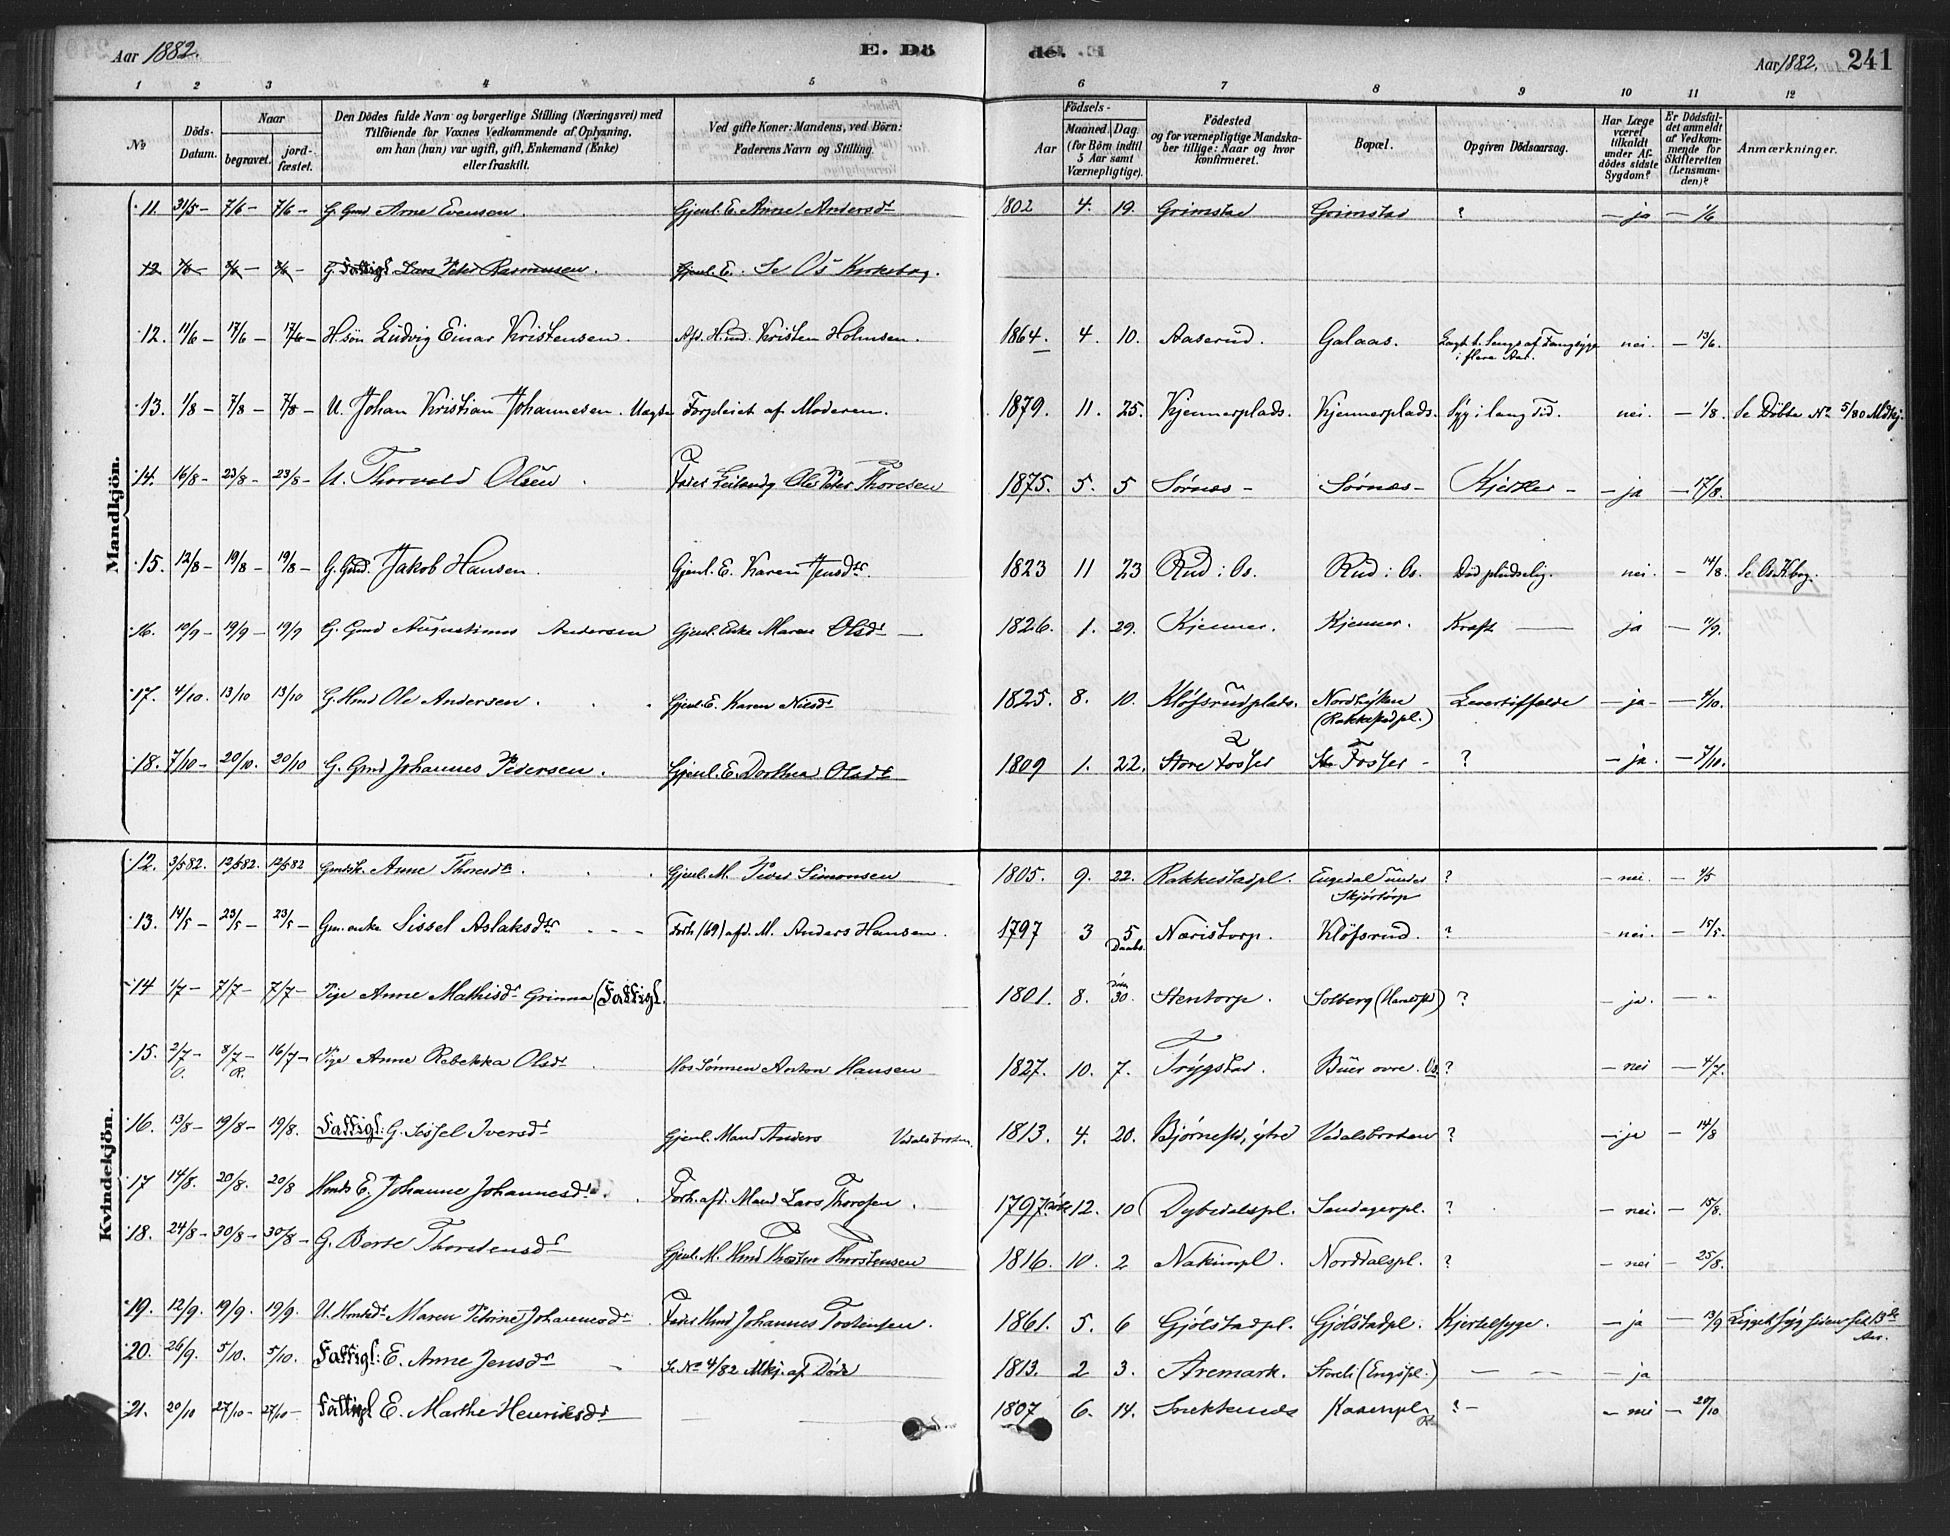 Aar 1882. E. Dö
de. Aar 1882. 241
1 2 3 4 5 6 7 8 9 10 11 12
No
Döds-Datum.
Naar
begravet. jordfæstet.
Den Dödes fulde Navn og borgerlige Stilling (Næringsvei) med
Tilföiende for Voxnes Vedkommende af Oplysning,
om han (hun) var ugift, gift, Enkemand (Enke)
eller fraskilt.
Ved gifte Koner: Mandens, ved Börn:
Faderens Navn og Stilling.
Födsels-
Aar Maaned. Dag.
(for Börn indtil
5 Aar samt
Værnepligtige).
Födested
og for værnepligtige Mandska-
ber tillige: Naar og hvor
konfirmeret.
Bopæl.
Opgiven Dödsaarsag.
Har Læge
været
tilkaldt
under Af-
dödes sidste
Sygdom?
Er Dödsfal-
det anmeldt
af Vedkom-
mende for
Skifteretten
(Lensman-
den)?
Anmærkninger.
Mandkjön.
11. 31/5 - 7/6 - 7/6 - G. Gmd Arne Evensen. Gjenl. E. Anne Andersdr 1802 4. 19. Grimstad Grimstad ? - ja - 1/6
12 G. Fattigl Lars Peter Rasmussen. Gjenl. E. Se Os Kirkebog.
12. 11/6 - 17/6 - 17/6 - H. sön Ludvig Einar Kristensen. Afd. Hmd. Kristen Holmsen. 1864. 4 10. Aaserud. Galaas. i flere Aar. nei. - 13/6.
13. 1/8 - 7/8 - 7/8 - U. Johan Kristian Johannesen. Uægte Forpleiet af Moderen. 1879. 11. 25. Kjennerplads. Kjennerplads. Syg i lang Tid. nei. - 1/8. Se Döbte No 5/80 Mdkj.
14. 16/8 - 23/8 - 23/8 - U. Thorvald Olsen Fader Leilændg Ole Peter Thoresen 1875. 5. 5 Sörnæs - Sörnæs - - ja - 17/8.
15. 12/8 - 19/8 - 19/8 - G. Gmd. Jakob Hansen. Gjenl. E. Karen Jensdr. 1823 11 23 Rud i Os. Rud i Os. Död pludselig. nei. - 14/8. Se Os Kbog.
16. 10/9 - 19/9 - 19/9 G. Gmd Augustinus Andersen Gjenl. Enke Maren Olsdr - 1826. 1. 29. Kjenner. Kjenner. Kræft - ja - 11/9.
17. 4/10. 13/10 13/10 G. Hmd Ole Andersen. Gjenl. E. Karen Nilsdr 1825. 8. 10. Klöfsrudplads. (Rakkestadpl.) - ja - 4/10.
18. 7/10 - 20/10. 20/10 G. Gmd Johannes Pedersen. Gjenl. E. Dorthea Olsdr 1809 1. 22. Store Fosser St. Fosser - ? - ja. - 7/10.
Kvindekjön.
12. 3/5 82. 12/5 82. 12/5 82 Anne Thoresdr. Gjenl. M. Peder Simonsen 1805. 9. 22. Rakkestadpl. Engedal under Skjörtorp ? - nei. - 4/5
13. 14/5 - 23/5 - 23/5 - Gm. enke Sissel Aslaksdtr - - - Forh. (69) afd. M. Anders Hansen. 1797 3 5 Daabsd. Næristorp. Klöfsrud. ? - nei. - 15/5.
14 1/7 - 7/7 - 7/7 - Pige Anne Mathisdr Grinna (Fattigl. 1801. 8. 30. Stentorp. Solberg (Haraldstd) ? - ja. -
15. 2/7 - 8/7 - R. 16/7 - Pige Anne Rebekka Olsdr Hos Sönnen Anton Hansen 1827. 10. 7. Trygstad. Buer ovre. Os. ? - nei - 4/7.
16. 13/8 - 19/8 - 19/8. Fattigl: G. Sissel Iversdr Gjenl. Mand Anders Vadalsbraten. 1813. 4. 20. Björnestd, ytre Vadalsbraten ? - ja - 14/8
17 14/8. 20/8. 20/8 Hmds E. Johanne Johannesdr. Forh. afd. Mand Lars Thorsen. 1797 12. 10 Dybedalspl. Sandagerpl. ? - nei. - 15/8.
18. 24/8 - 30/8 - 30/8 - G. Berte Thorstensdr Gjenl. M. Hmd Thosten Thorstensen 1816. 10. 2 Nakimpl. Nordalspl. ? - nei - 25/8.
19. 12/9. 19/9. 19/9. U. Maren Petrine Johannesdr. Fader Hmd Johannes Tostensen. 1861. 5. 6 Gjölstadpl. Gjölstadpl. Kjertelsyge. - ja - 13/9 Ligget syg siden sit 13de Aar.
20. 26/9. 5/10. 5/10. Fattigl: E. Anne Jensdr Se No 4/82 Mkj. af Döde 1813. 2 3. Aremark. Storeli (Engspl.) - - - ja
21. 20/10 27/10 - 27/10 - Fattigl E. Marthe Henriksdr 1807 6. 14. ? - - nei - 20/10